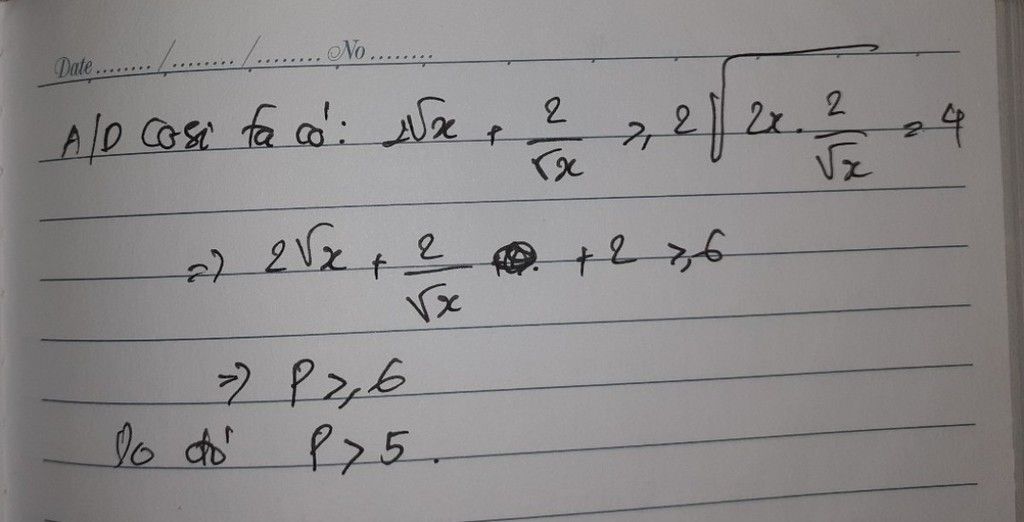 Date......../......../........No........
A/D Cosi ta có: 2√x + 2/√x ≥ 2√(2x . 2/√x) = 4
=> 2√x + 2/√x + 2 ≥ 6
=> P ≥ 6
Do đó P > 5.